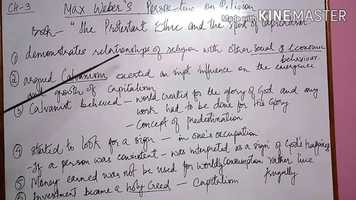 CH-3
MAX WEBER'S Perspective on Religion
Book - "The Protestant Ethic and the Spirit of Capitalism
① demonstrates relationships of religion with other social & economic
behaviour
② argued Calvanism exerted an impt influence on the emergence
and growth of Capitalism
③ Calvanist believed - world created for the glory of God and any
work had to be done for His glory
- Concept of predestination
④ started to look for a sign - in one's occupation
- If a person was consistent - was interpreted as a sign of God's happiness
⑤ Money earned was not be used for worldly consumption rather live
frugally
⑥ Investment became a holy Creed - Capitalism